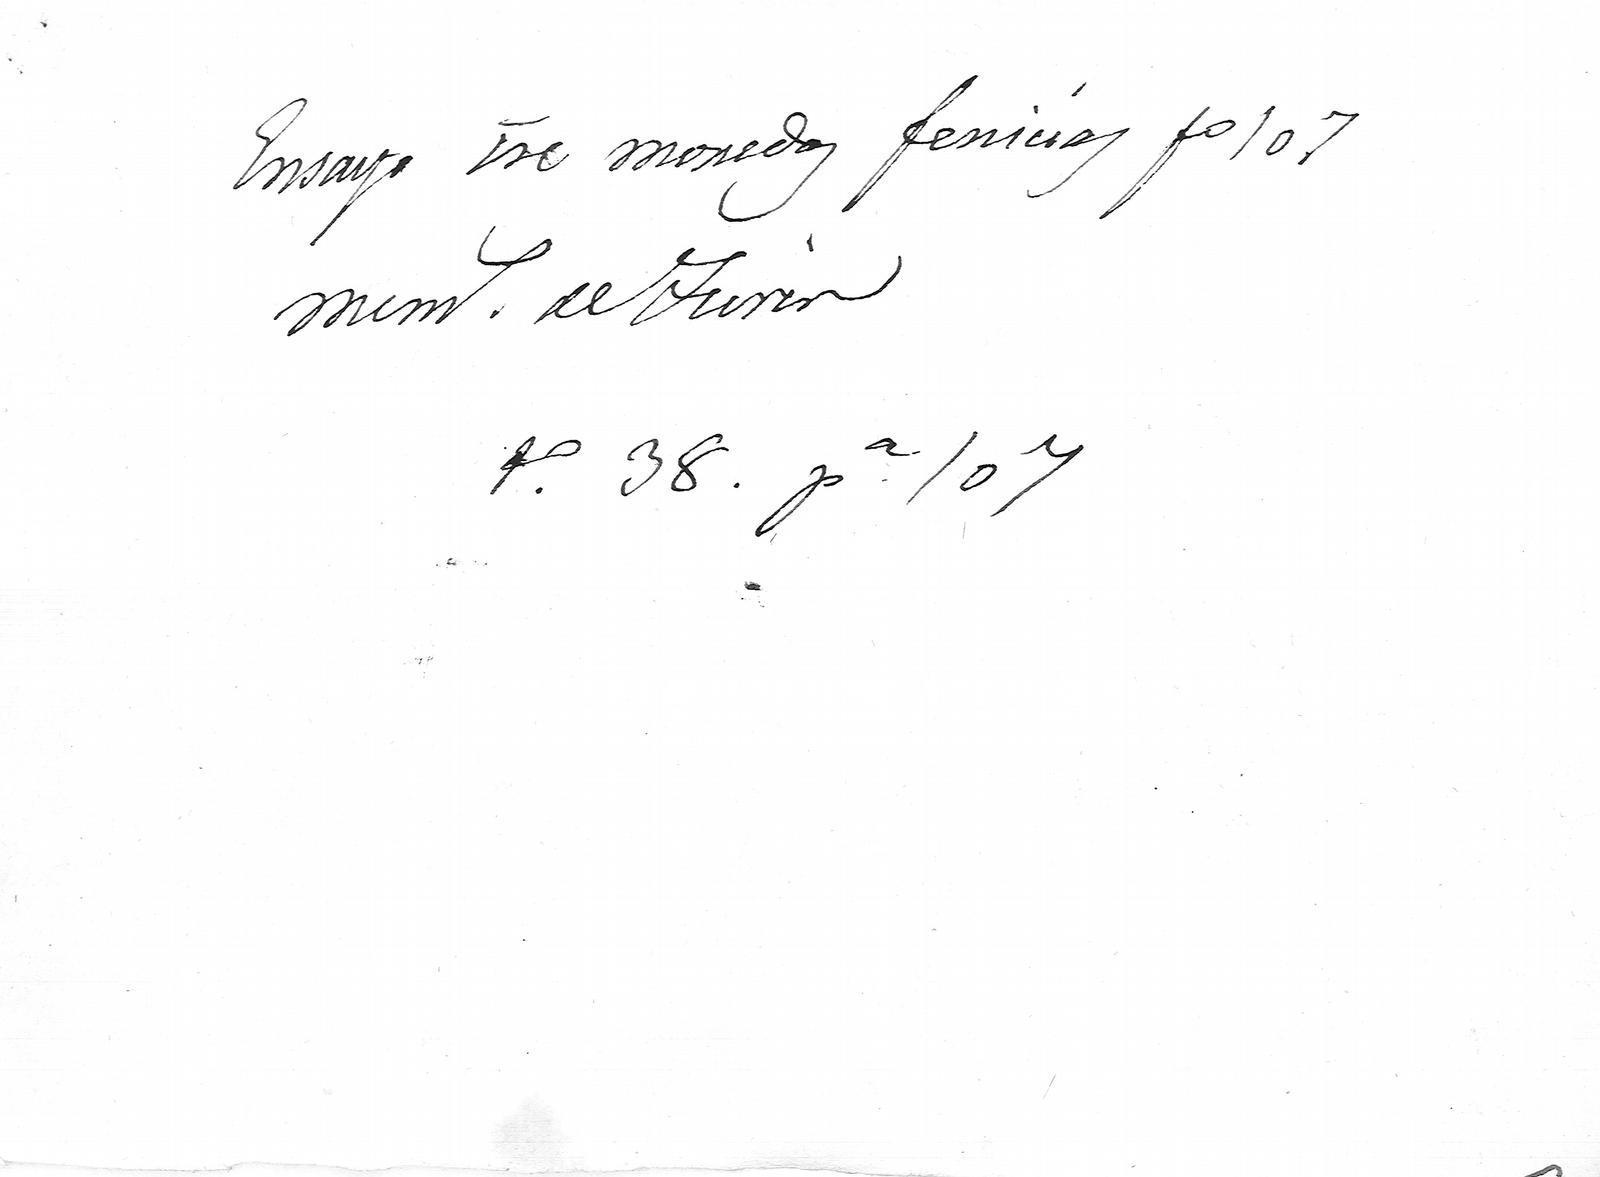 Ensayo sre monedas fenicias fo 107
mem.s de Turin
to. 38. pa. 107